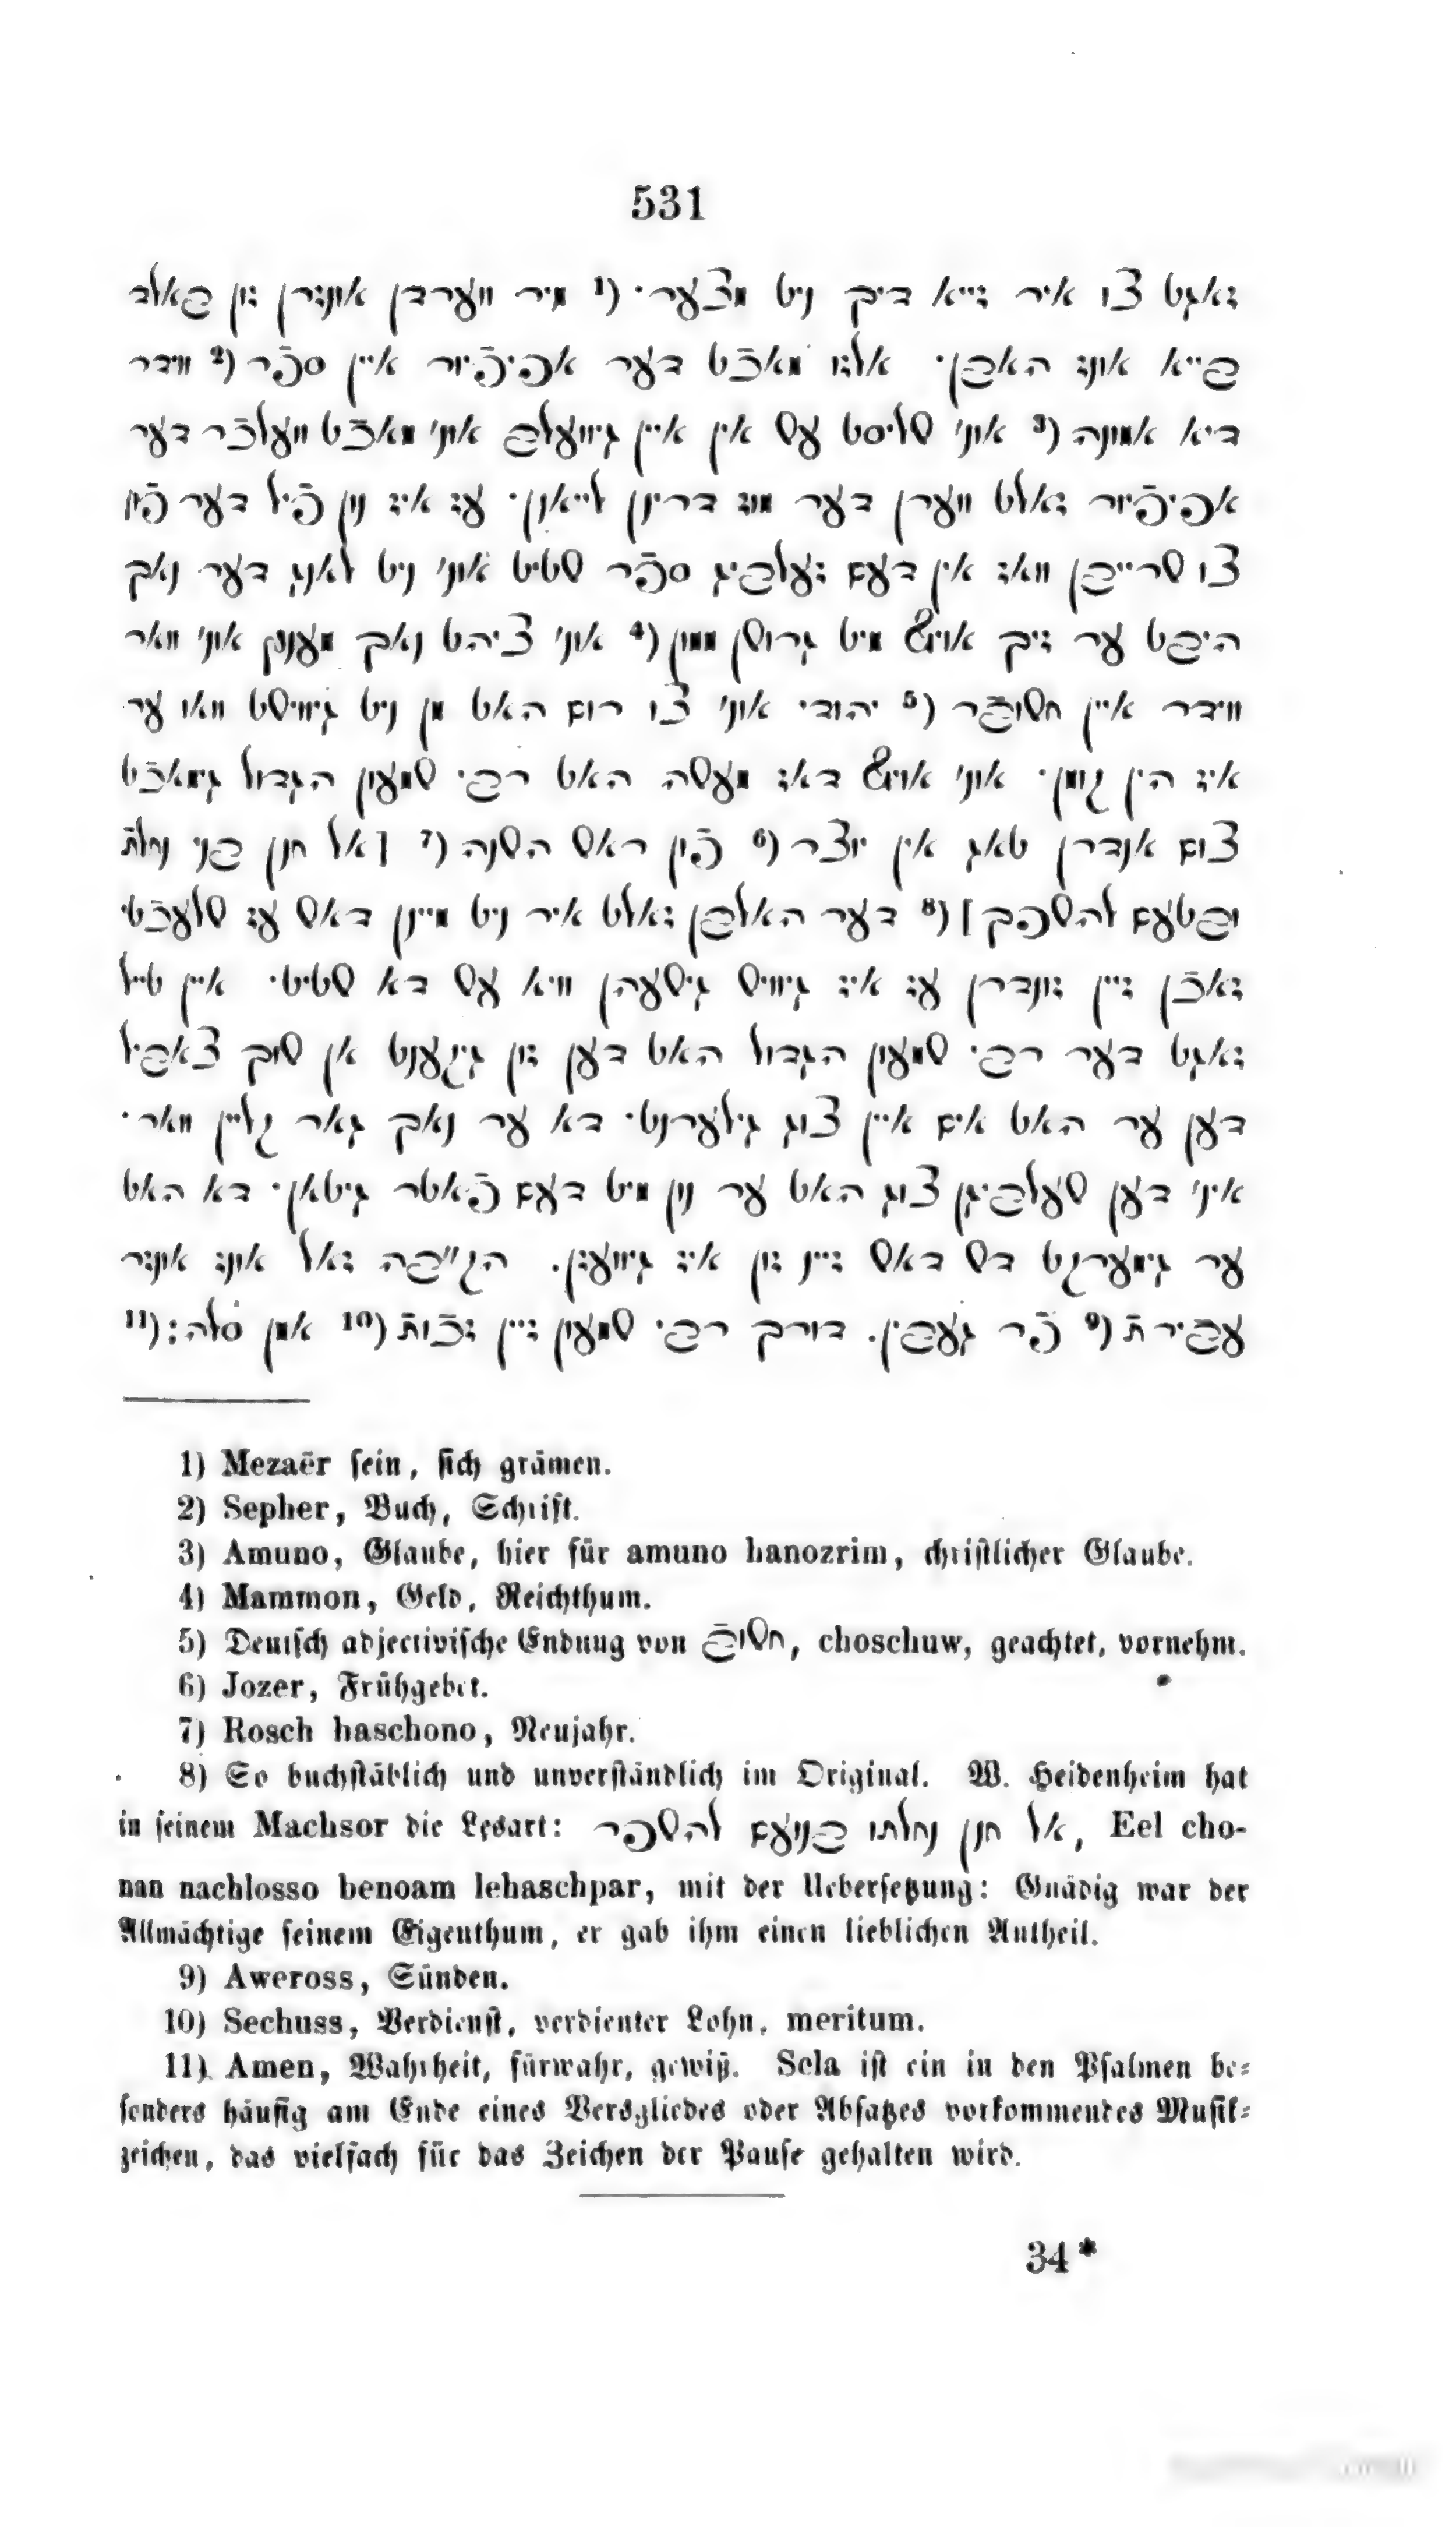 531
זאגט צו איר זייא דיך ניט מצער· (1 מיר ווערדן אונזרן זון באלד
בייא אונז האבן· אלזו מאכֿט דער אפיפֿיור איין ספֿר (2 ווידר
דיא אמונה (3 אונ' שליסט עש אין איין גיוועלב אונ' מאכֿט וועלכֿר דער
אפיפֿיור זאלט ווערן דער מוז דרינן לייאנן· עז איז נון פֿיל דער פֿון
צו שרייבן וואז אין דעם זעלביג ספֿר שטיט אונ' ניט לאנג דער נאך
היבט ער זיך אויף מיט גרושן ממון (4 אונ' ציהט נאך מענץ אונ' וואר
ווידר איין חשובֿר (5 יהודי אונ' צו רום האט מן ניט גיוויסט וואו ער
איז הין קומן· אונ' אויף דאז מעשה האט רבי שמעון הגדול גימאכֿט
צום אנדרן טאג אין יוצר (6 פֿון ראש השנה (7 [אל חנן בני נחלתֿ
ובטעם להשפך] (8 דער האלבן זאלט איר ניט מיינן דאש עז שלעכֿטי
זאכֿן זיין זונדרן עז איז גיוויש גישעהן וויא עש דא שטיט· איין טייל
זאגט דער רבי שמעון הגדול האט דען זון גיקענט אן שוך צאביל
דען ער האט אים איין צוג גילערנט· דא ער נאך גאר קליין וואר·
אינ' דען שעלביגן צוג האט ער נון מיט דעם פֿאטר גיטאן· דא האט
ער גימערקט דש דאש זיין זון איז גיוועזן. הק״בה זאל אונז אונזר
עבירתֿ (9 פֿר געבין. דורך רבי שמעון זיין זכֿותֿ (10 אמן סלה: (11
1) Mezaër sein, sich grämen.
2) Sepher, Buch, Schrift.
3) Amuno, Glaube, hier für amuno hanozrim, christlicher Glaube.
4) Mammon, Geld, Reichthum.
5) Deutsch adjectivische Endung von חשובֿ, choschuw, geachtet, vornehm.
6) Jozer, Frühgebet.
7) Rosch haschono, Neujahr.
8) So buchstäblich und unverständlich im Original. W. Heidenheim hat
in seinem Machsor die Lesart: אל חנן נחלתו בנועם להשפר, Eel cho-
nan nachlosso benoam lehaschpar, mit der Uebersetzung: Gnädig war der
Allmächtige seinem Eigenthum, er gab ihm einen lieblichen Antheil.
9) Aweross, Sünden.
10) Sechuss, Verdienst, verdienter Lohn, meritum.
11) Amen, Wahrheit, fürwahr, gewiß. Sela ist ein in den Psalmen be-
sonders häufig am Ende eines Versgliedes oder Absatzes vorkommendes Musik-
zeichen, das vielfach für das Zeichen der Pause gehalten wird.
34*